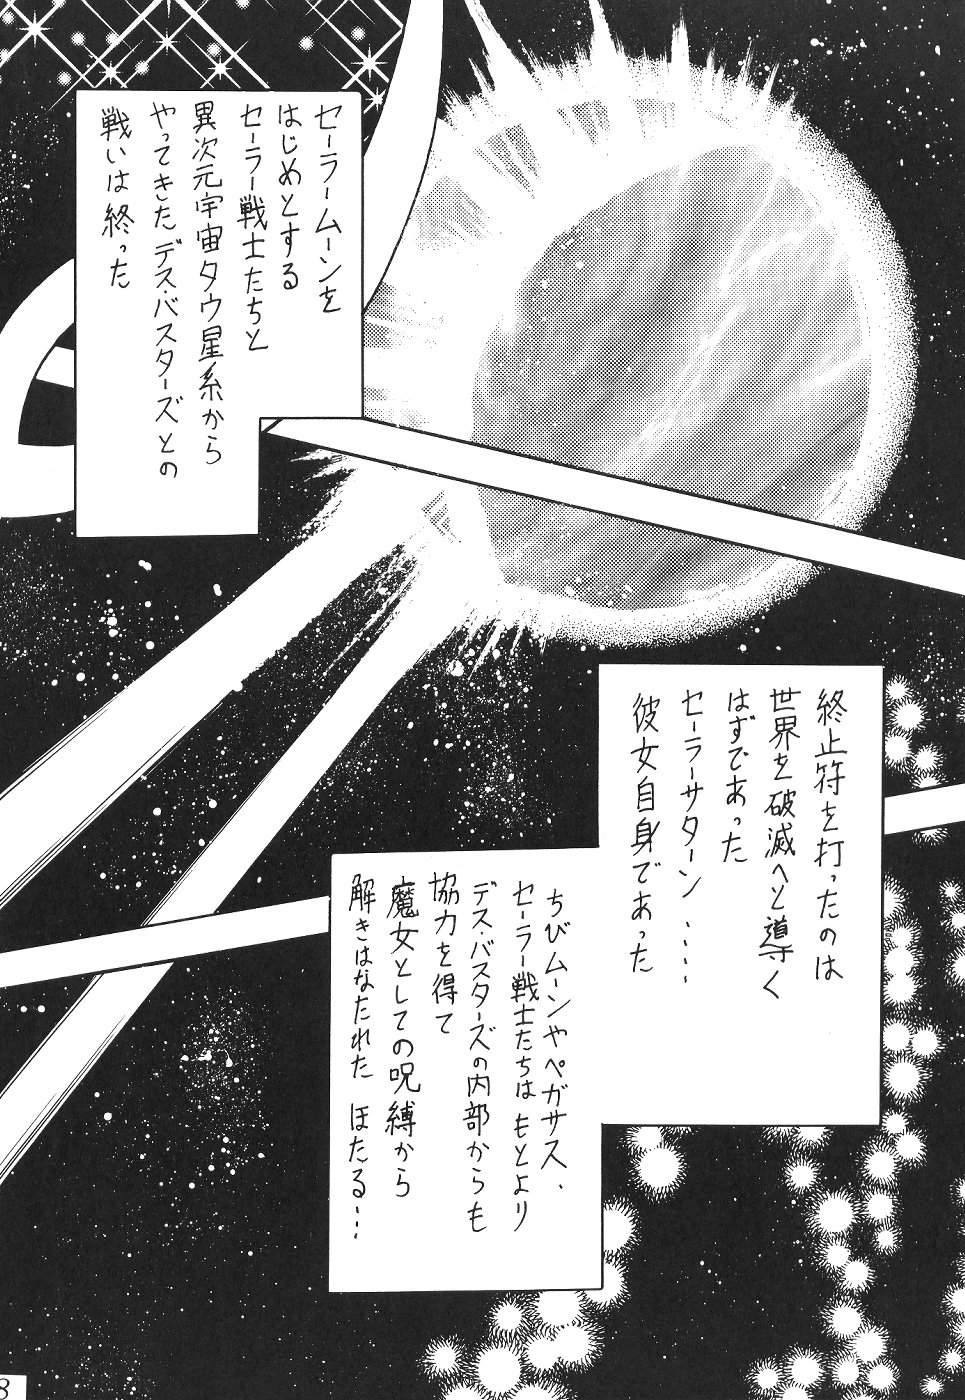 セーラームーンを
はじめとする
セーラー戦士たちと
異次元宇宙タウ星系から
やってきたデス・バスターズとの
戦いは終った
終止符を打ったのは
世界を破滅へと導く
はずであった
セーラーサターン……
彼女自身であった
ちびムーンやペガサス、
セーラー戦士たちはもとより
デス・バスターズの内部からも
協力を得て
魔女としての呪縛から
解きはなたれた ほたる…
8